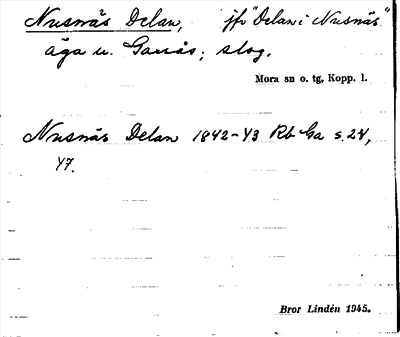 Nusnäs Delan, jfr "Delan i Nusnäs"
äga u. Garsås; skog.
Mora sn o. tg, Kopp. l.
Nusnäs Delan 1842-43 Rb Ga s. 24,
47.
Bror Lindén 1945.